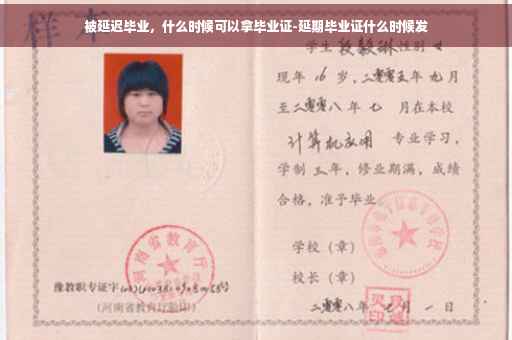 被延迟毕业，什么时候可以拿毕业证-延期毕业证什么时候发
样本
学生 段毅琳 性别 女
现年 16 岁，二零零五年 九月
至二零零八年 七 月在本校
计算机应用 专业学习，
学制 三 年，修业期满，成绩
合格，准予毕业
学校（章）
河南省教育厅
校长（章）
豫教职专证字
(河南省教育厅验印)
二零零八年 七 月 一 日